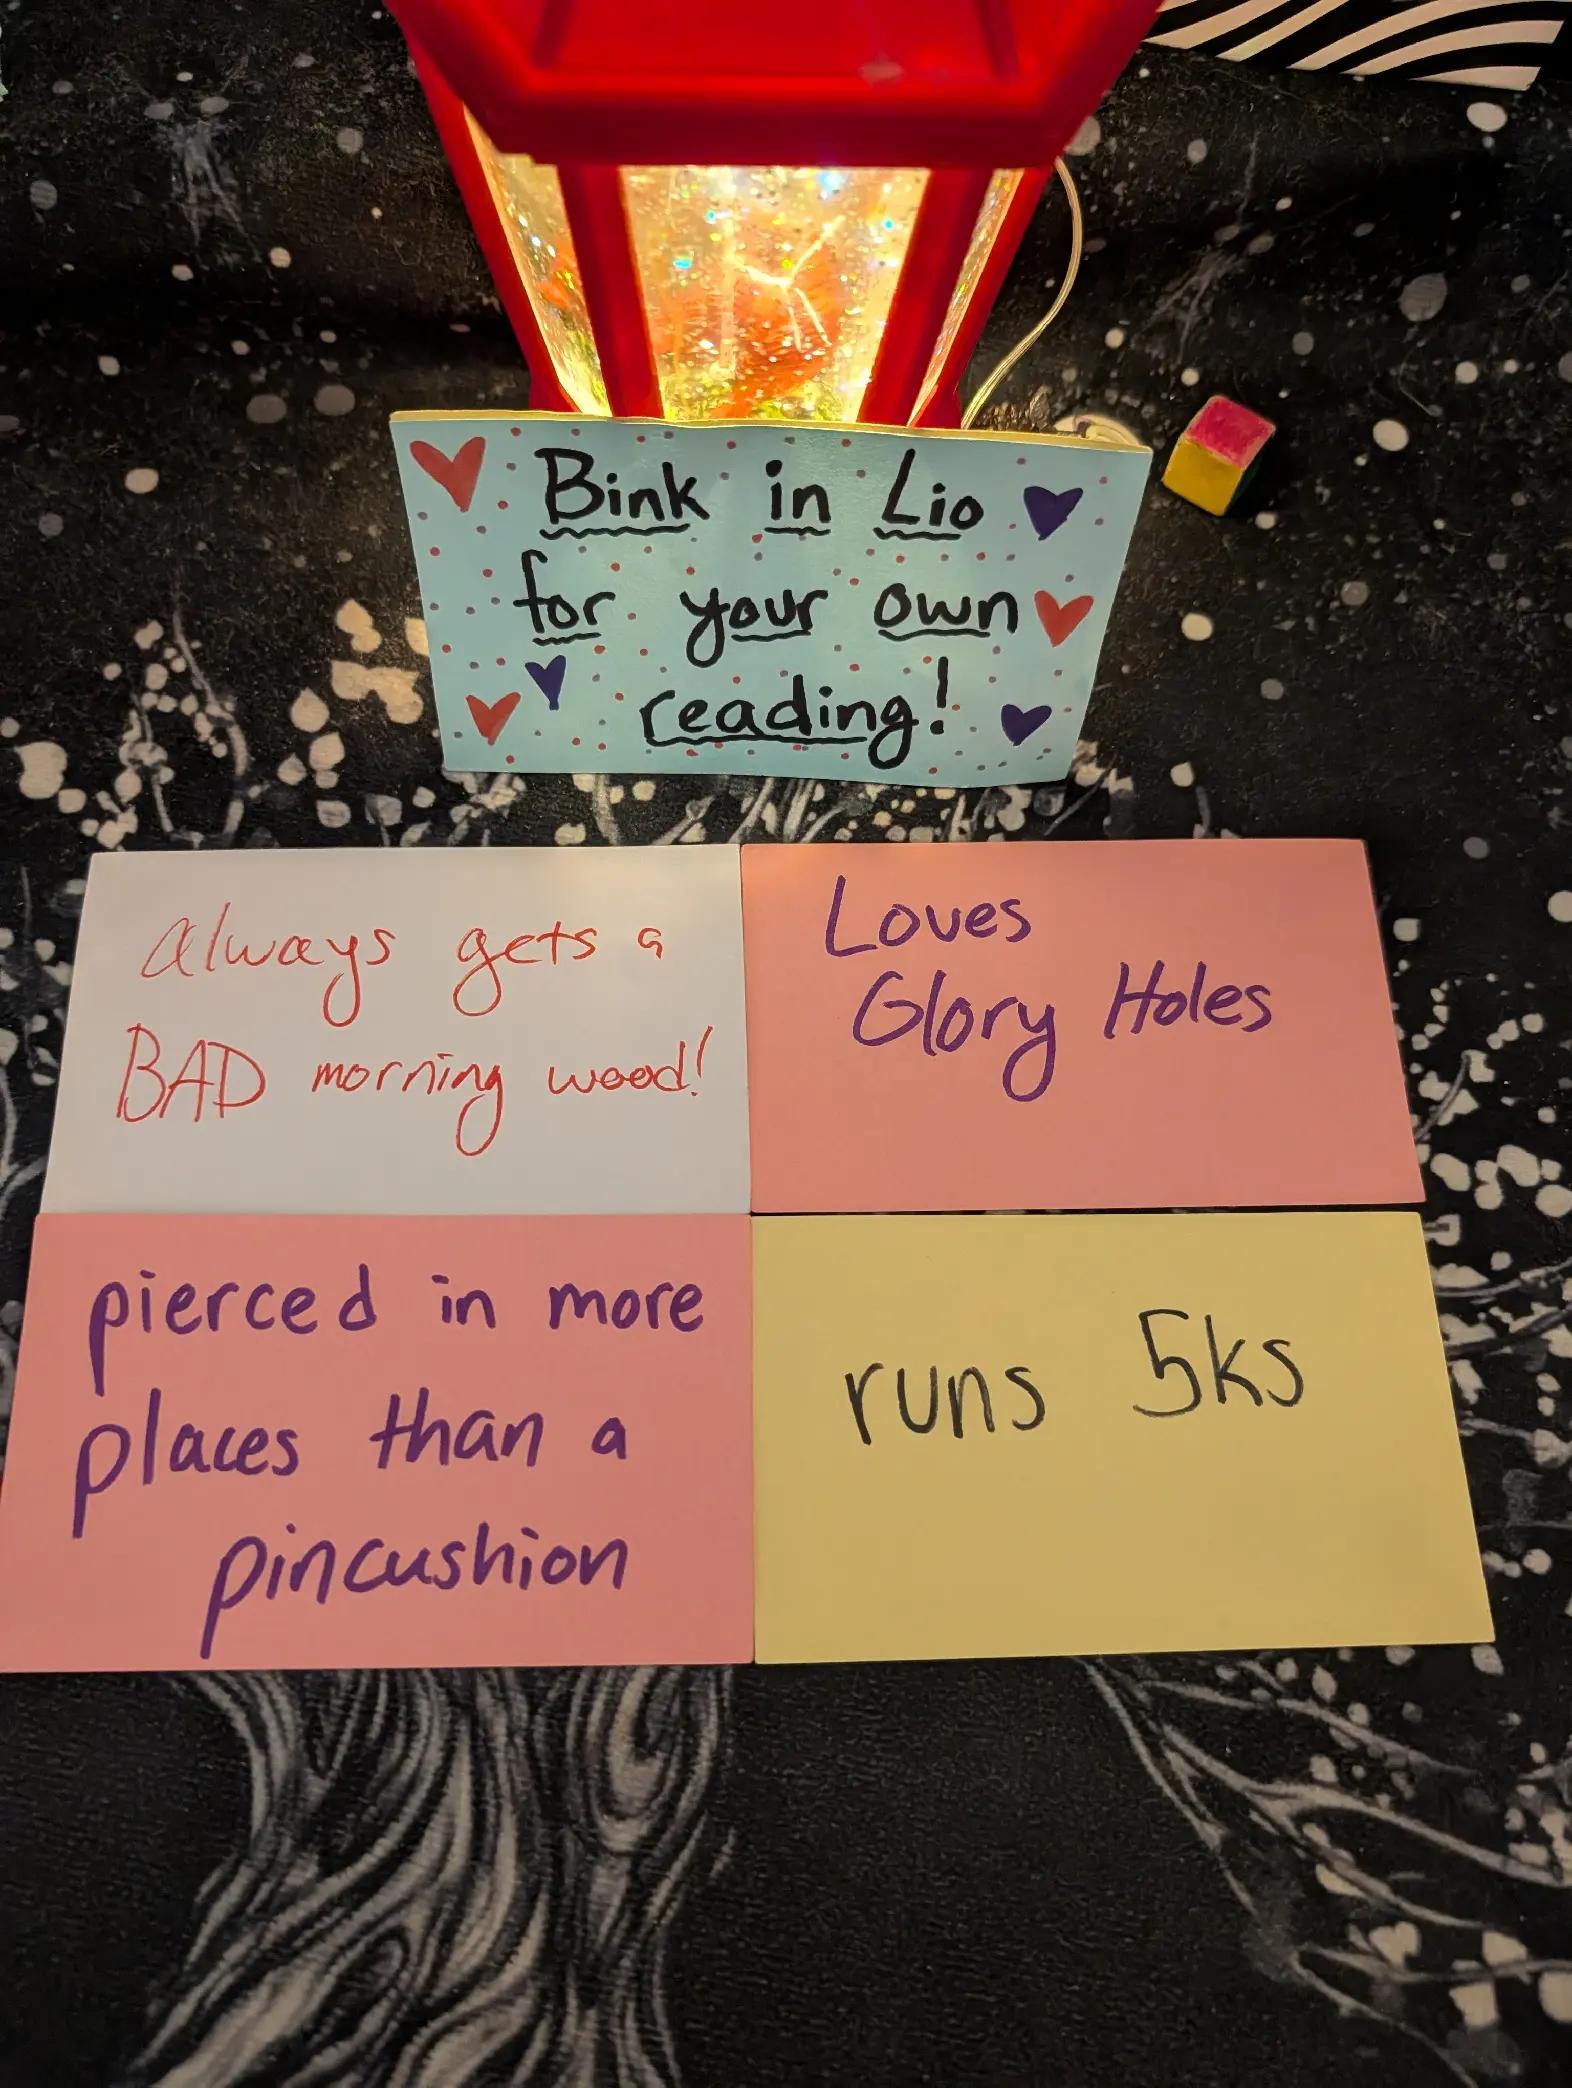 Bink in Lio
for your own
reading!
always gets a
BAD morning wood!
Loves
Glory Holes
pierced in more
places than a
pincushion
runs 5ks